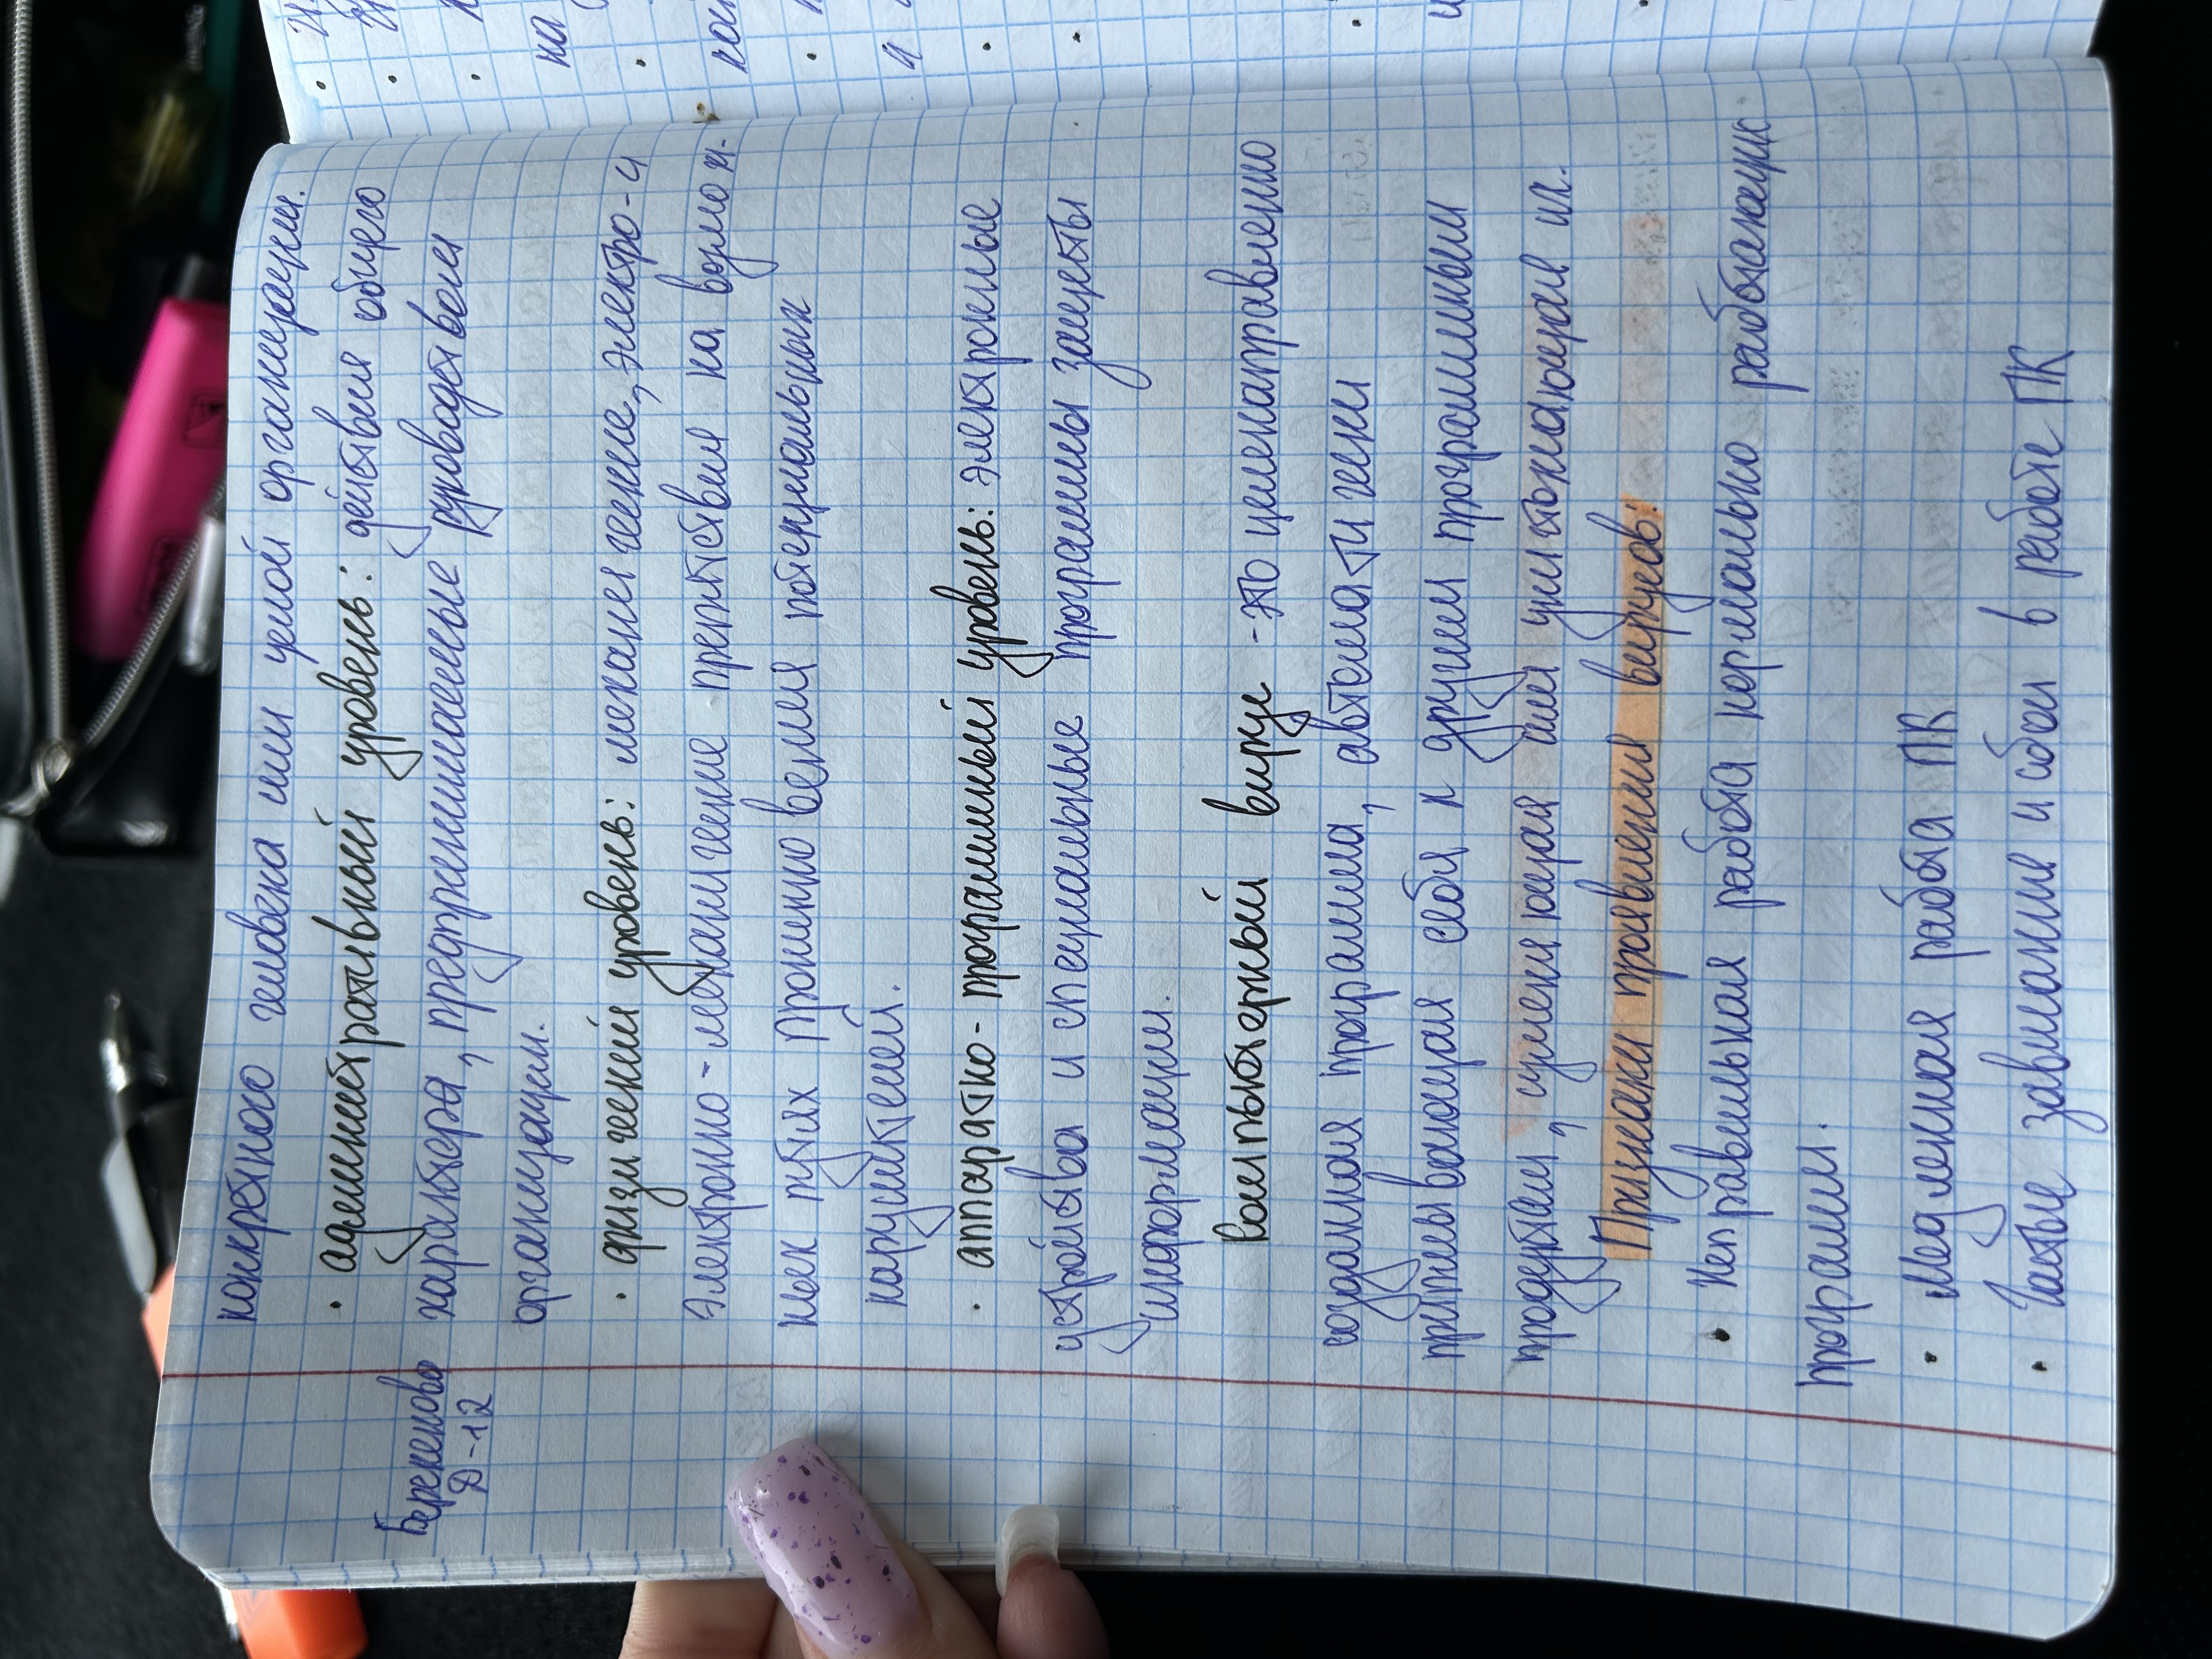 конкретного человека или целой организации.
• административный уровень: действия общего
Беркенова
Д-12
характера, предпринимаемые руководством
организации.
• физический уровень: механические, электро- и
электронно-механические препятствия на возмож-
ных путях проникновения потенциальных
нарушителей.
• аппаратно-программный уровень: электронные
устройства и специальные программы защиты
информации.
Компьютерный вирус - это целенаправленно
созданная программа, автоматически
приписывающая себя к другим программным
продуктам, изменяющая или уничтожающая их.
Признаки проявления вирусов:
• Неправильная работа нормально работающих
программ.
• Медленная работа ПК
• Частые зависания и сбои в работе ПК